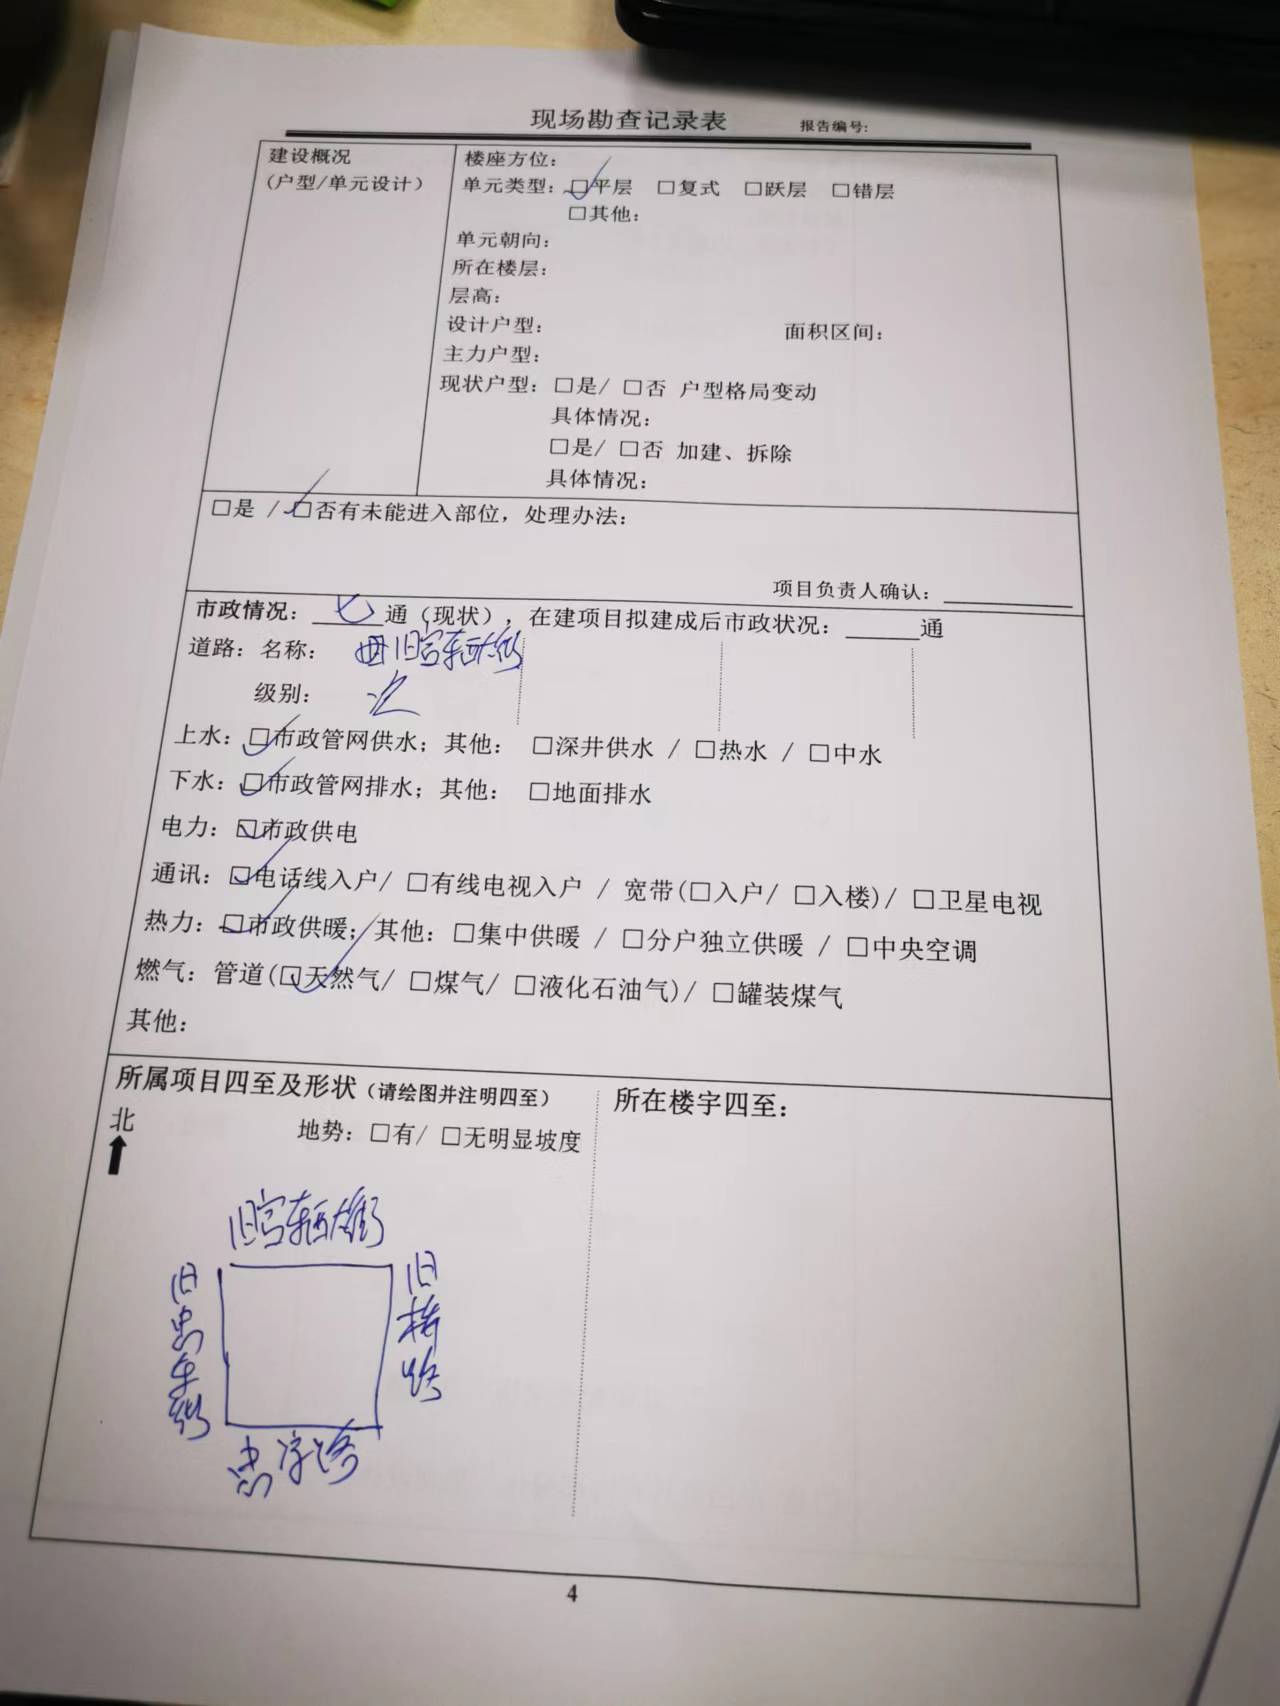 现场勘查记录表 报告编号:
建设概况
(户型/单元设计)
楼座方位:
单元类型: ☑平层 □复式 □跃层 □错层
□其他:
单元朝向:
所在楼层:
层高:
设计户型: 面积区间:
主力户型:
现状户型: □是/ □否 户型格局变动
具体情况:
□是/ □否 加建、拆除
具体情况:
□是 / ☑否有未能进入部位，处理办法:
项目负责人确认:
市政情况: 七 通（现状），在建项目拟建成后市政状况: ______通
道路: 名称: 旧宫东西大街
级别: 次
上水: ☑市政管网供水; 其他: □深井供水 / □热水 / □中水
下水: ☑市政管网排水; 其他: □地面排水
电力: ☑市政供电
通讯: ☑电话线入户/ □有线电视入户 / 宽带(□入户/ □入楼)/ □卫星电视
热力: ☑市政供暖; 其他: □集中供暖 / □分户独立供暖 / □中央空调
燃气: 管道(☑天然气/ □煤气/ □液化石油气)/ □罐装煤气
其他:
所属项目四至及形状（请绘图并注明四至）
北
地势: □有/ □无明显坡度
所在楼宇四至:
旧宫东西大街
旧忠
旧桥路
忠
4